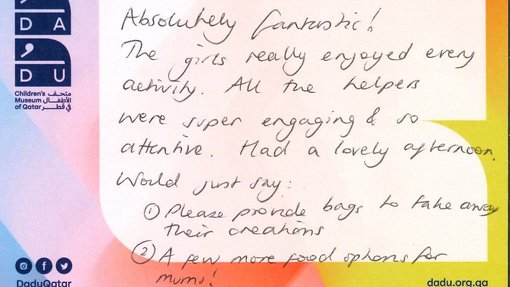 DA
DU
Children's
Museum
of Qatar
متحف
الأطفال
في قطر
Absolutely fantastic!
The girls really enjoyed every
activity. All the helpers
were super engaging & so
attentive. Had a lovely afternoon.
Would just say:
① Please provide bags to take away
their creations
② A few more food options for
mums!
DaduQatar
dadu.org.qa